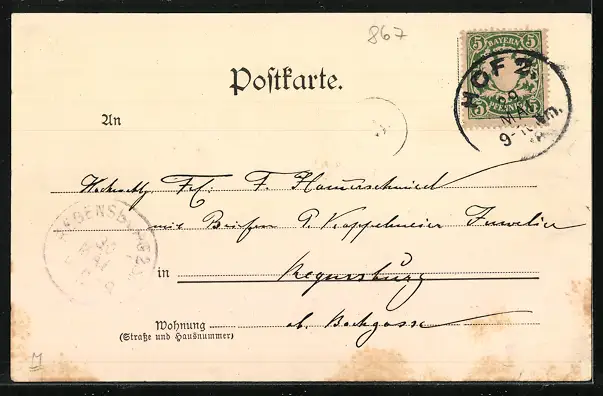 867
Postkarte.
5 BAYERN 5
5 PFENNIG 5
HOF 2.
9
MAI
9-10 Vm.
An
Hochwohlg. Frl. F. Hammerschmied
mit Briefen P. Koppelmeier Juwelier
REGENSBURG 2
in Regensburg
Wohnung ob. Bachgasse
(Straße und Hausnummer)